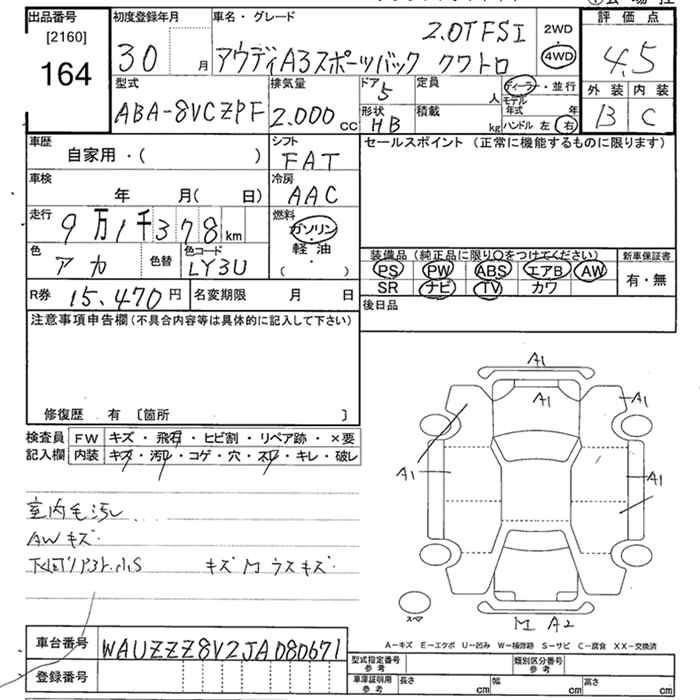 出品番号
[2160]
164
初度登録年月
30 月
車名・グレード
2.0TFSI
アウディA3スポーツバック クワトロ
2WD
4WD
評価点
4.5
外装 内装
B C
型式
ABA-8VCZPF
排気量
2.000 cc
ドア
5
形状
HB
定員 人
積載 kg
ディーラー・並行
モデル年式 年
ハンドル 左 右
車歴
自家用・( )
シフト
FAT
セールスポイント (正常に機能するものに限ります)
車検
年 月( 日)
冷房
AAC
走行
9万1千378km
燃料
ガソリン
・
軽油
( )
色
アカ
色替
色コード
LY3U
装備品 (純正品に限り○をつけてください)
新車保証書
PS PW ABS エアB AW
有・無
SR ナビ TV カワ
R券 15.470円
名変期限 月 日
後日品
注意事項申告欄(不具合内容等は具体的に記入して下さい)
修復歴 有 〔箇所 〕
検査員
記入欄
FW キズ・飛石・ヒビ割・リペア跡・×要
内装 キズ・汚れ・コゲ・穴・スレ・キレ・破レ
室内毛汚レ
AWキズ
キズMウスキズ
A1
A1
A1
A1
A1
スペア
M A2
A-キズ E-エクボ U-凹み W-補修跡 S-サビ C-腐食 XX-交換済
車台番号
WAUZZZ8V2JA080671
登録番号
型式指定番号
参考
類別区分番号
参考
車庫証明用
参考
長さ cm
幅 cm
高さ cm